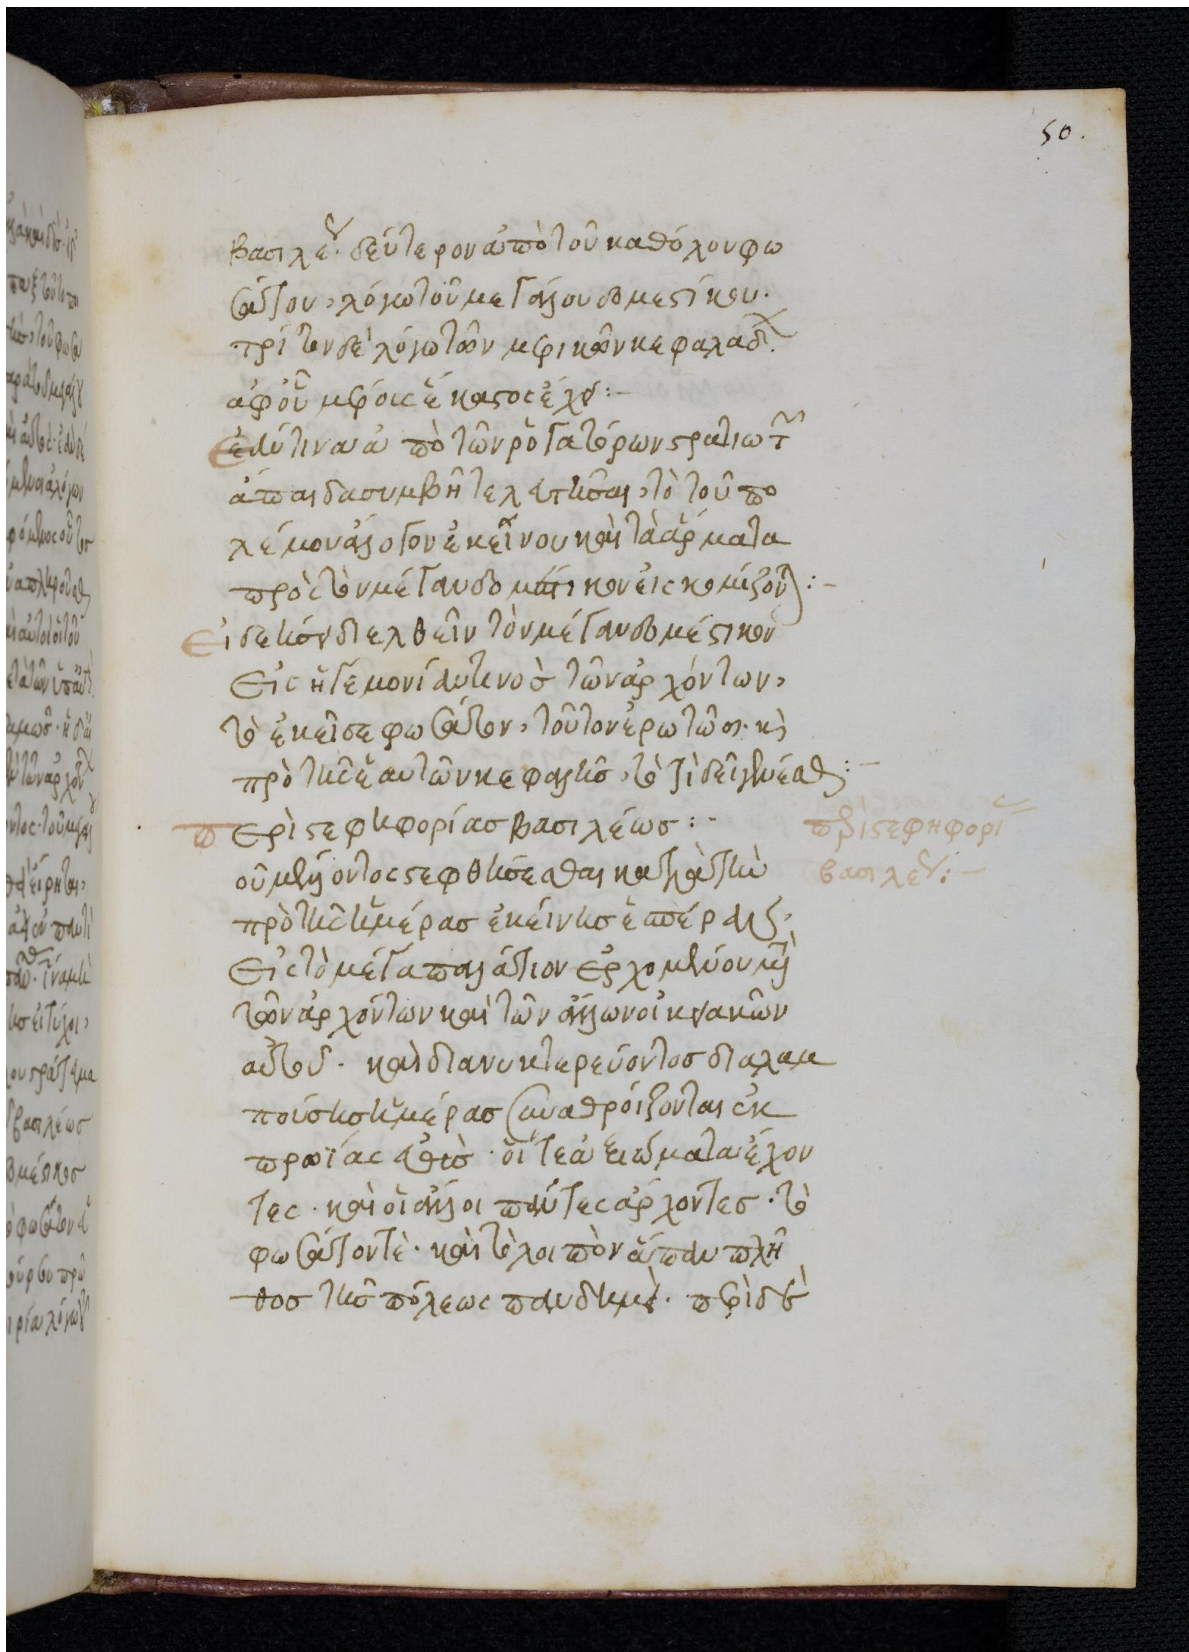 50.
βασιλέως· δεύτερον ἀπὸ τοῦ καθόλου φω
σάτου, λόγω τοῦ μεγάλου δομεστίκου.
τρίτον δὲ λόγω τῶν μερικῶν κεφαλάδων
ἀφ' οὗ μέρους ἕκαστος ἔχει:–
Ἐὰν τινὰ ἀπὸ τῶν ῥογατόρων στρατιωτῶν
ἄπαιδα συμβῆ τελευτῆσαι, τὸ τοῦ πο
λέμου ἄλογον ἐκείνου καὶ τὰ ἄρματα
πρὸς τὸν μέγαν δομέστικον εἰσκομίζονται:–
Εἰ δὲ κἂν διελθεῖν τὸν μέγαν δομέστικον
εἰς ἡγεμονίαν τινὸς τῶν ἀρχόντων,
τὸ ἐκεῖσε φωσάτον, τοῦτον ἐρωτῶσι καὶ
πρὸ τῆς ἑαυτῶν κεφαλῆς, τὸ τί δεῖ γενέσθαι:–
Περὶ στεφηφορίας βασιλέως:–
περὶ στεφηφορίας
βασιλέως:–
οὗ μέλλοντος στεφθήσεσθαι κατὰ τὴν
πρὸ τῆς ἡμέρας ἐκείνης ἑσπέραν,
εἰς τὸ μέγα παλάτιον ἐρχομένου μετὰ
τῶν ἀρχόντων καὶ τῶν ἄλλων οἰκειακῶν
αὐτοῦ. καὶ διανυκτερεύοντος διαλαμ
πούσης ἡμέρας συναθροίζονται ἐκ
πρωΐας αὖθις· οἵ τε ἀξιώματα ἔχον
τες· καὶ οἱ ἄλλοι πάντες ἄρχοντες· τὸ
φωσάτον τὲ· καὶ τὸ λοιπὸν ἅπαν πλῆ
θος τῆς πόλεως πανδημεί· περὶ δὲ